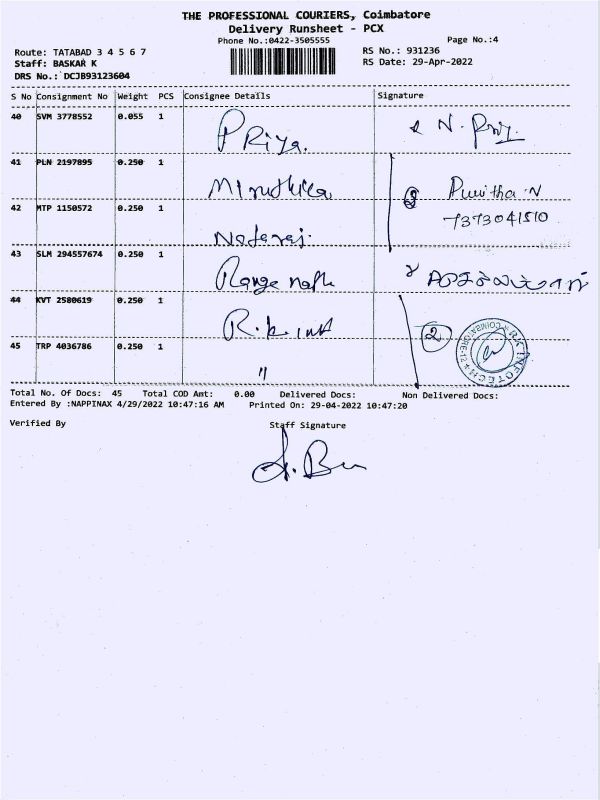 THE PROFESSIONAL COURIERS, Coimbatore
Delivery Runsheet - PCX
Phone No.:0422-3505555
Page No.:4
Route: TATABAD 3 4 5 6 7
RS No.: 931236
Staff: BASKAR K
RS Date: 29-Apr-2022
DRS No.: DCJB93123604
S No Consignment No Weight PCS Consignee Details Signature
40 SVM 3778552 0.055 1 Priya. N. Priy.
41 PLN 2197895 0.250 1 Miruthika ② Punitha N
7373041510
42 MTP 1150572 0.250 1 Nataraj.
43 SLM 294557674 0.250 1 Range nath
44 KVT 2580619 0.250 1 R.k. inft ②
RK INFOTECH COIMBATORE-12
45 TRP 4036786 0.250 1 "
Total No. Of Docs: 45 Total COD Amt: 0.00 Delivered Docs: Non Delivered Docs:
Entered By :NAPPINAX 4/29/2022 10:47:16 AM Printed On: 29-04-2022 10:47:20
Verified By Staff Signature